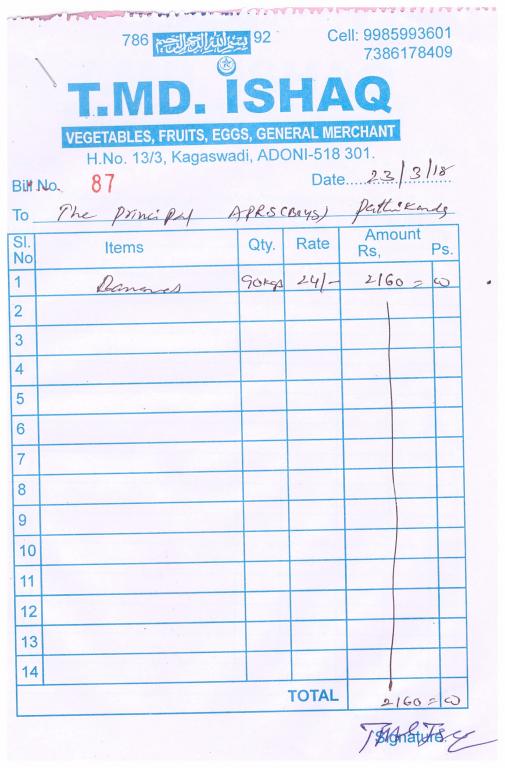 786 بسم الله الرحمن الرحيم 92
Cell: 9985993601
7386178409
T.MD. ISHAQ
VEGETABLES, FRUITS, EGGS, GENERAL MERCHANT
H.No. 13/3, Kagaswadi, ADONI-518 301.
Bill No. 87 Date..... 23/3/18
To The Principal APRS (Boys) Pathikonda
Sl. No Items Qty. Rate Amount Rs, Ps.
1 Bananas 90kgs 24/- 2160 = 00
2
3
4
5
6
7
8
9
10
11
12
13
14
TOTAL 2160 = 00
Signature.